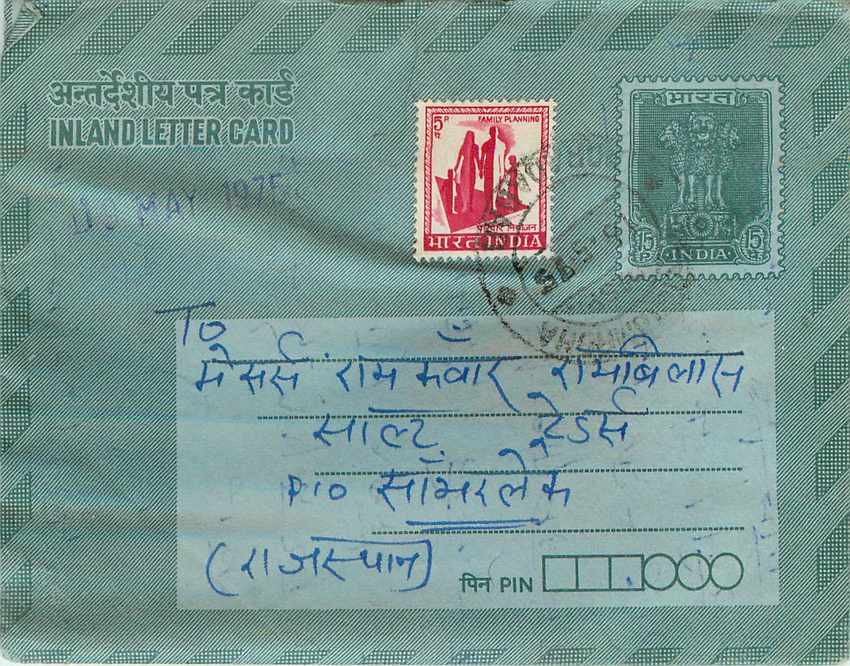 अन्तर्देशीय पत्र कार्ड
INLAND LETTER CARD
MAY 1975
5 P
पै.
FAMILY PLANNING
परिवार नियोजन
भारत INDIA
भारत
15 P 15 पै.
INDIA
To
मेसर्स रामकवार रामबिलास
साल्ट ट्रेडर्स
P/O सॉभरलेक
(राजस्थान)
पिन PIN